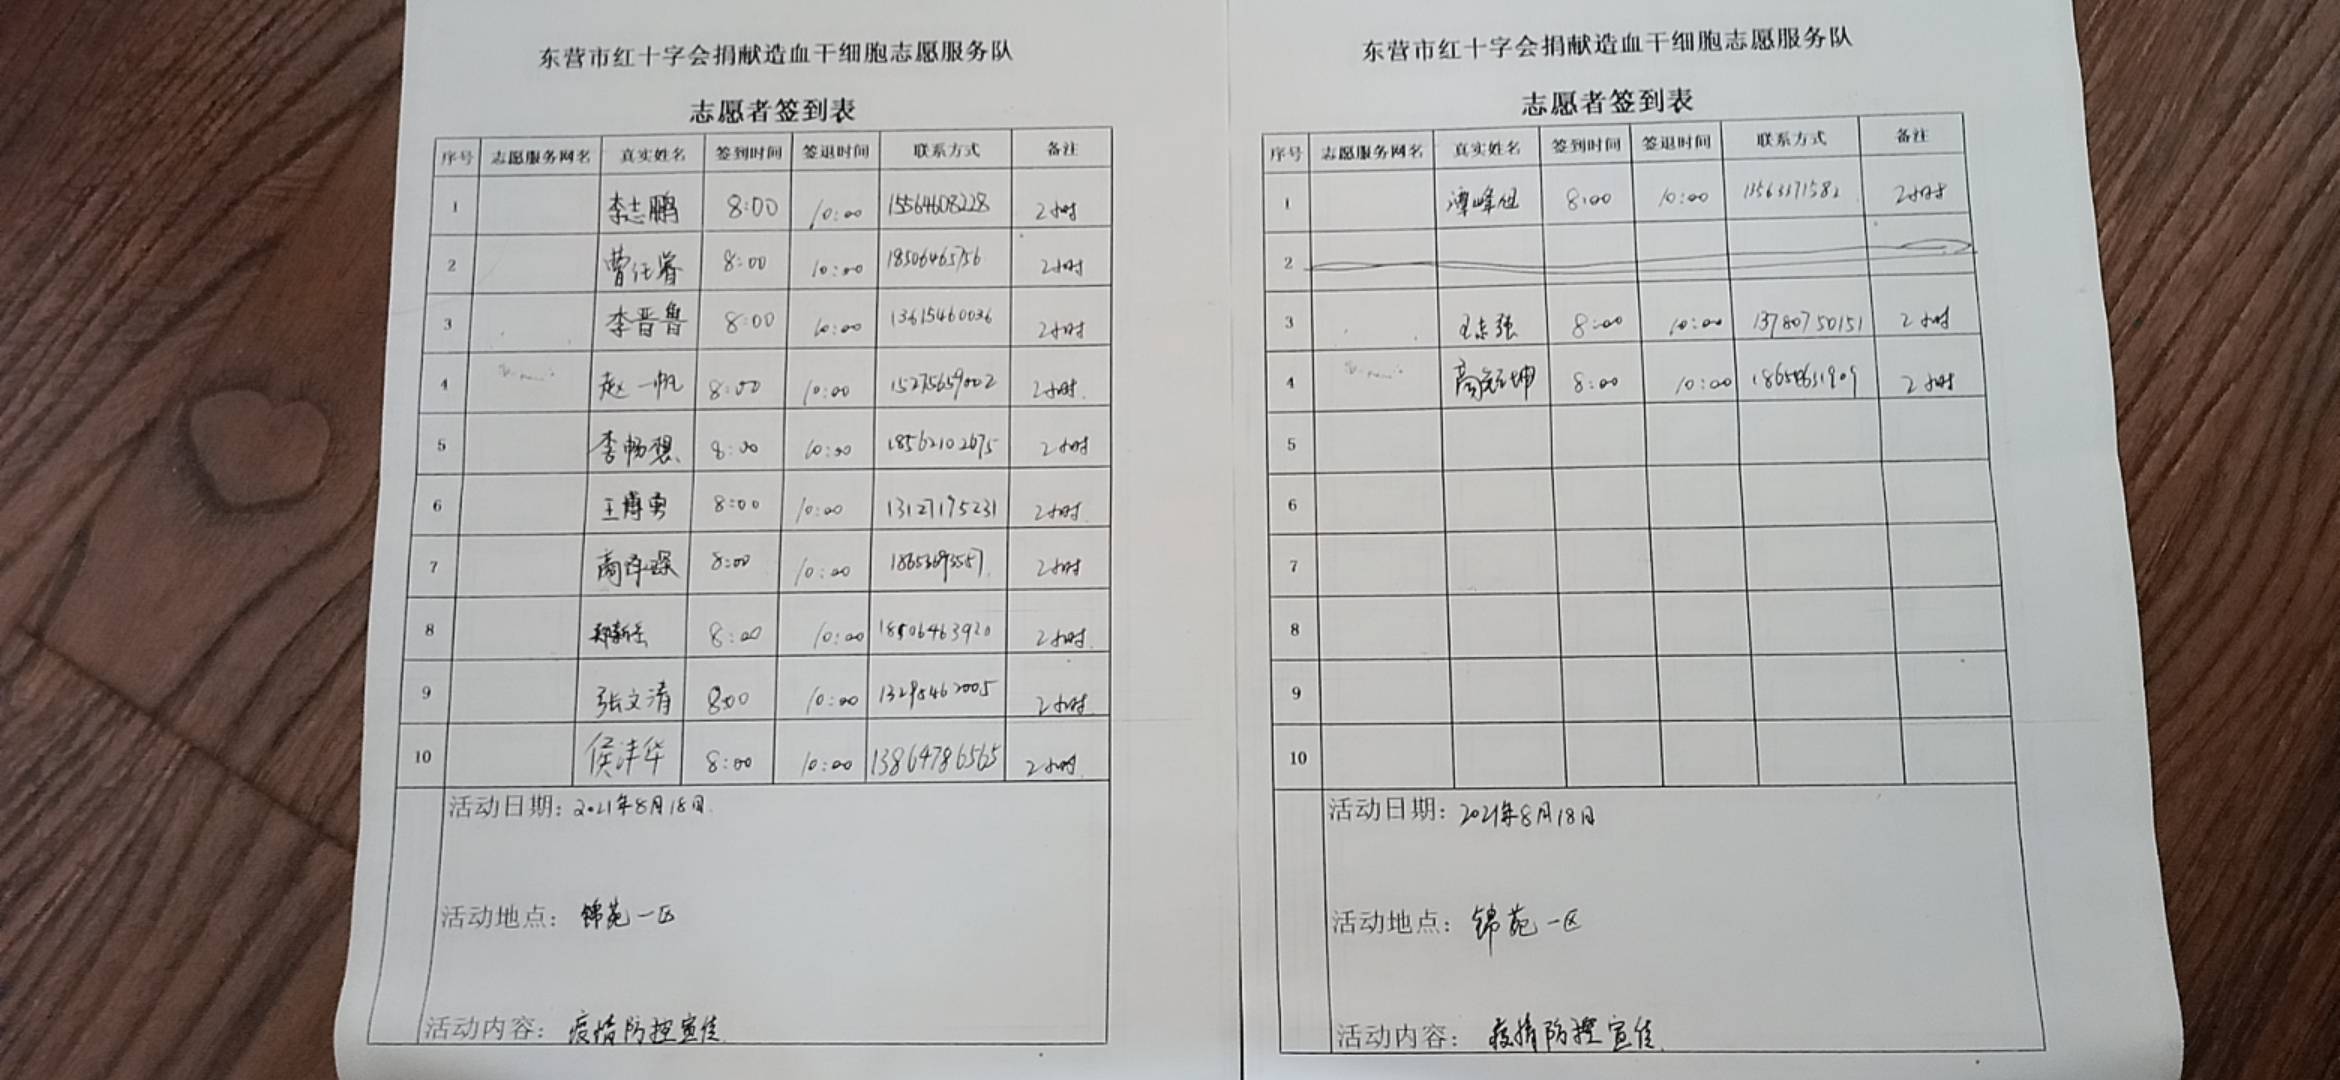 东营市红十字会捐献造血干细胞志愿服务队
志愿者签到表
序号 志愿服务网名 真实姓名 签到时间 签退时间 联系方式 备注
1 李志鹏 8:00 10:00 15564608228 2小时
2 8:00 10:00 18506465756 2小时
3 李晋鲁 8:00 10:00 13615460036 2小时
4 赵一帆 8:00 10:00 15275659002 2小时
5 李畅想 8:00 10:00 18562102675 2小时
6 王博勇 8:00 10:00 13127195231 2小时
7 8:00 10:00 2小时
8 8:00 10:00 18506463920 2小时
9 张文清 8:00 10:00 13295462005 2小时
10 侯沣华 8:00 10:00 13864786565 2小时
活动日期：2021年8月18日
活动地点：锦苑一区
活动内容：疫情防控宣传
东营市红十字会捐献造血干细胞志愿服务队
志愿者签到表
序号 志愿服务网名 真实姓名 签到时间 签退时间 联系方式 备注
1 8:00 10:00 13563371582 2小时
2
3 8:00 10:00 13780750151 2小时
4 8:00 10:00 2小时
5
6
7
8
9
10
活动日期：2021年8月18日
活动地点：锦苑一区
活动内容：疫情防控宣传